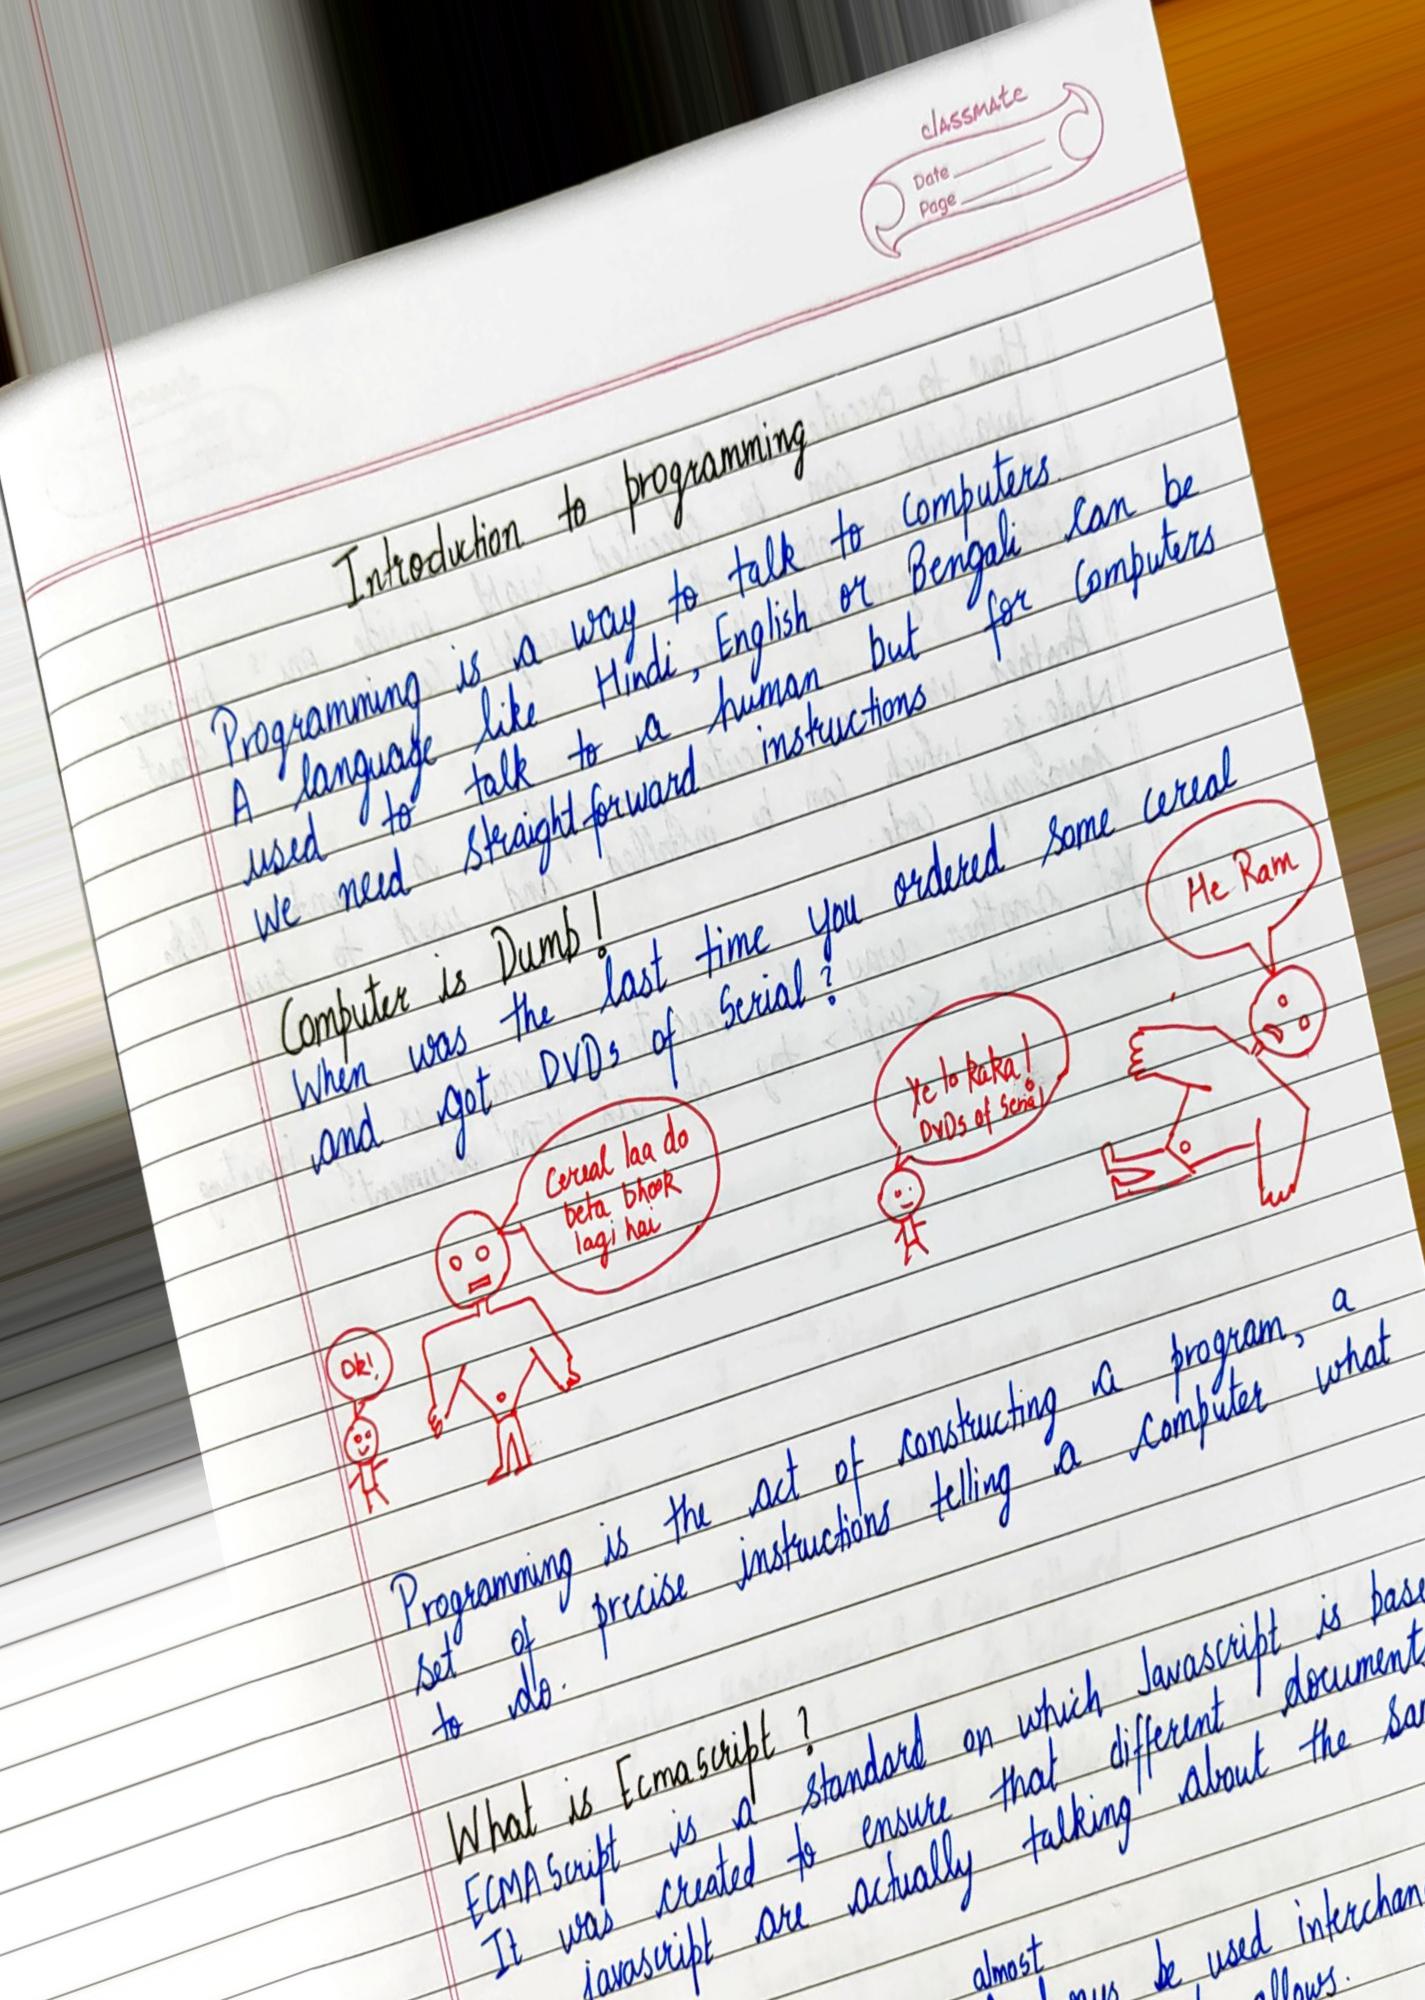 classmate
Date
Page
Introduction to programming
Programming is a way to talk to computers.
A language like Hindi, English or Bengali can be
used to talk to a human but for computers
we need straightforward instructions
Computer is Dumb!
When was the last time you ordered some cereal
and got DVDs of Serial?
He Ram
Ye lo kaka!
DVDs of Serial
Cereal laa do
beta bhook
lagi hai
Ok!
Programming is the act of constructing a program, a
set of precise instructions telling a computer what
to do.
What is Ecmascript?
ECMAScript is a standard on which Javascript is base
It was created to ensure that different documents
javascript are actually talking about the sa
almost
be used interchan
allows.